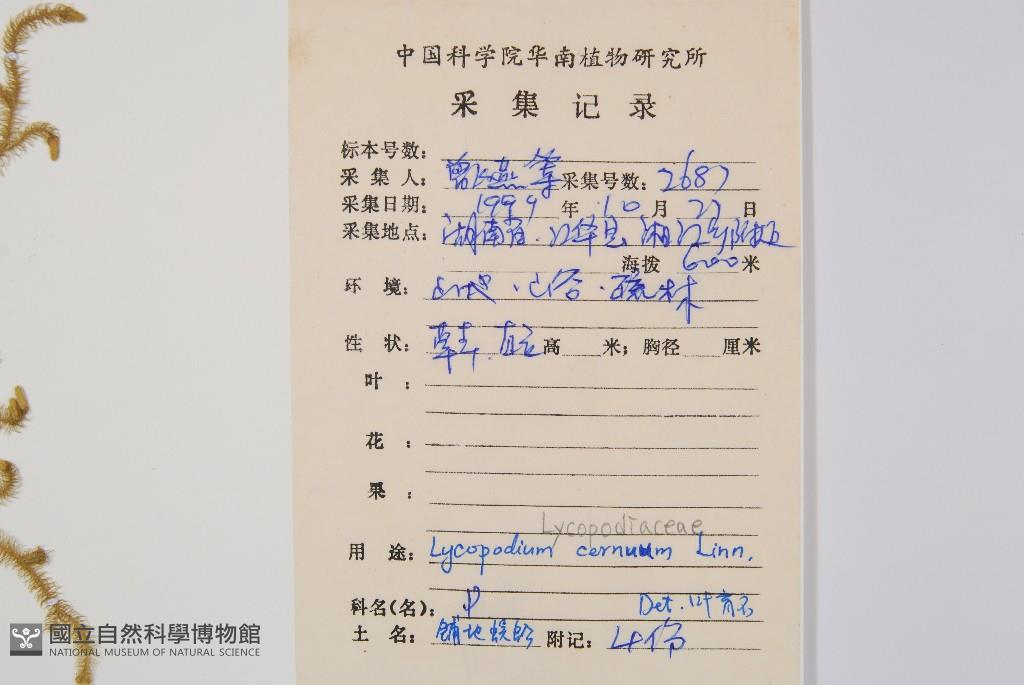 中国科学院华南植物研究所
采集记录
标本号数：
采集人：曾飞燕等 采集号数：2687
采集日期：1999年10月27日
采集地点：湖南省．江华县 湘江乡附近
海拨 600米
环境：山地．山谷．疏林
性状：草本．直立 高 米；胸径 厘米
叶：
花：
果：
Lycopodiaceae
用途：Lycopodium cernuum Linn.
科名(名)： Det. 叶育石
土名：铺地蜈蚣 附记：4份
國立自然科學博物館
NATIONAL MUSEUM OF NATURAL SCIENCE